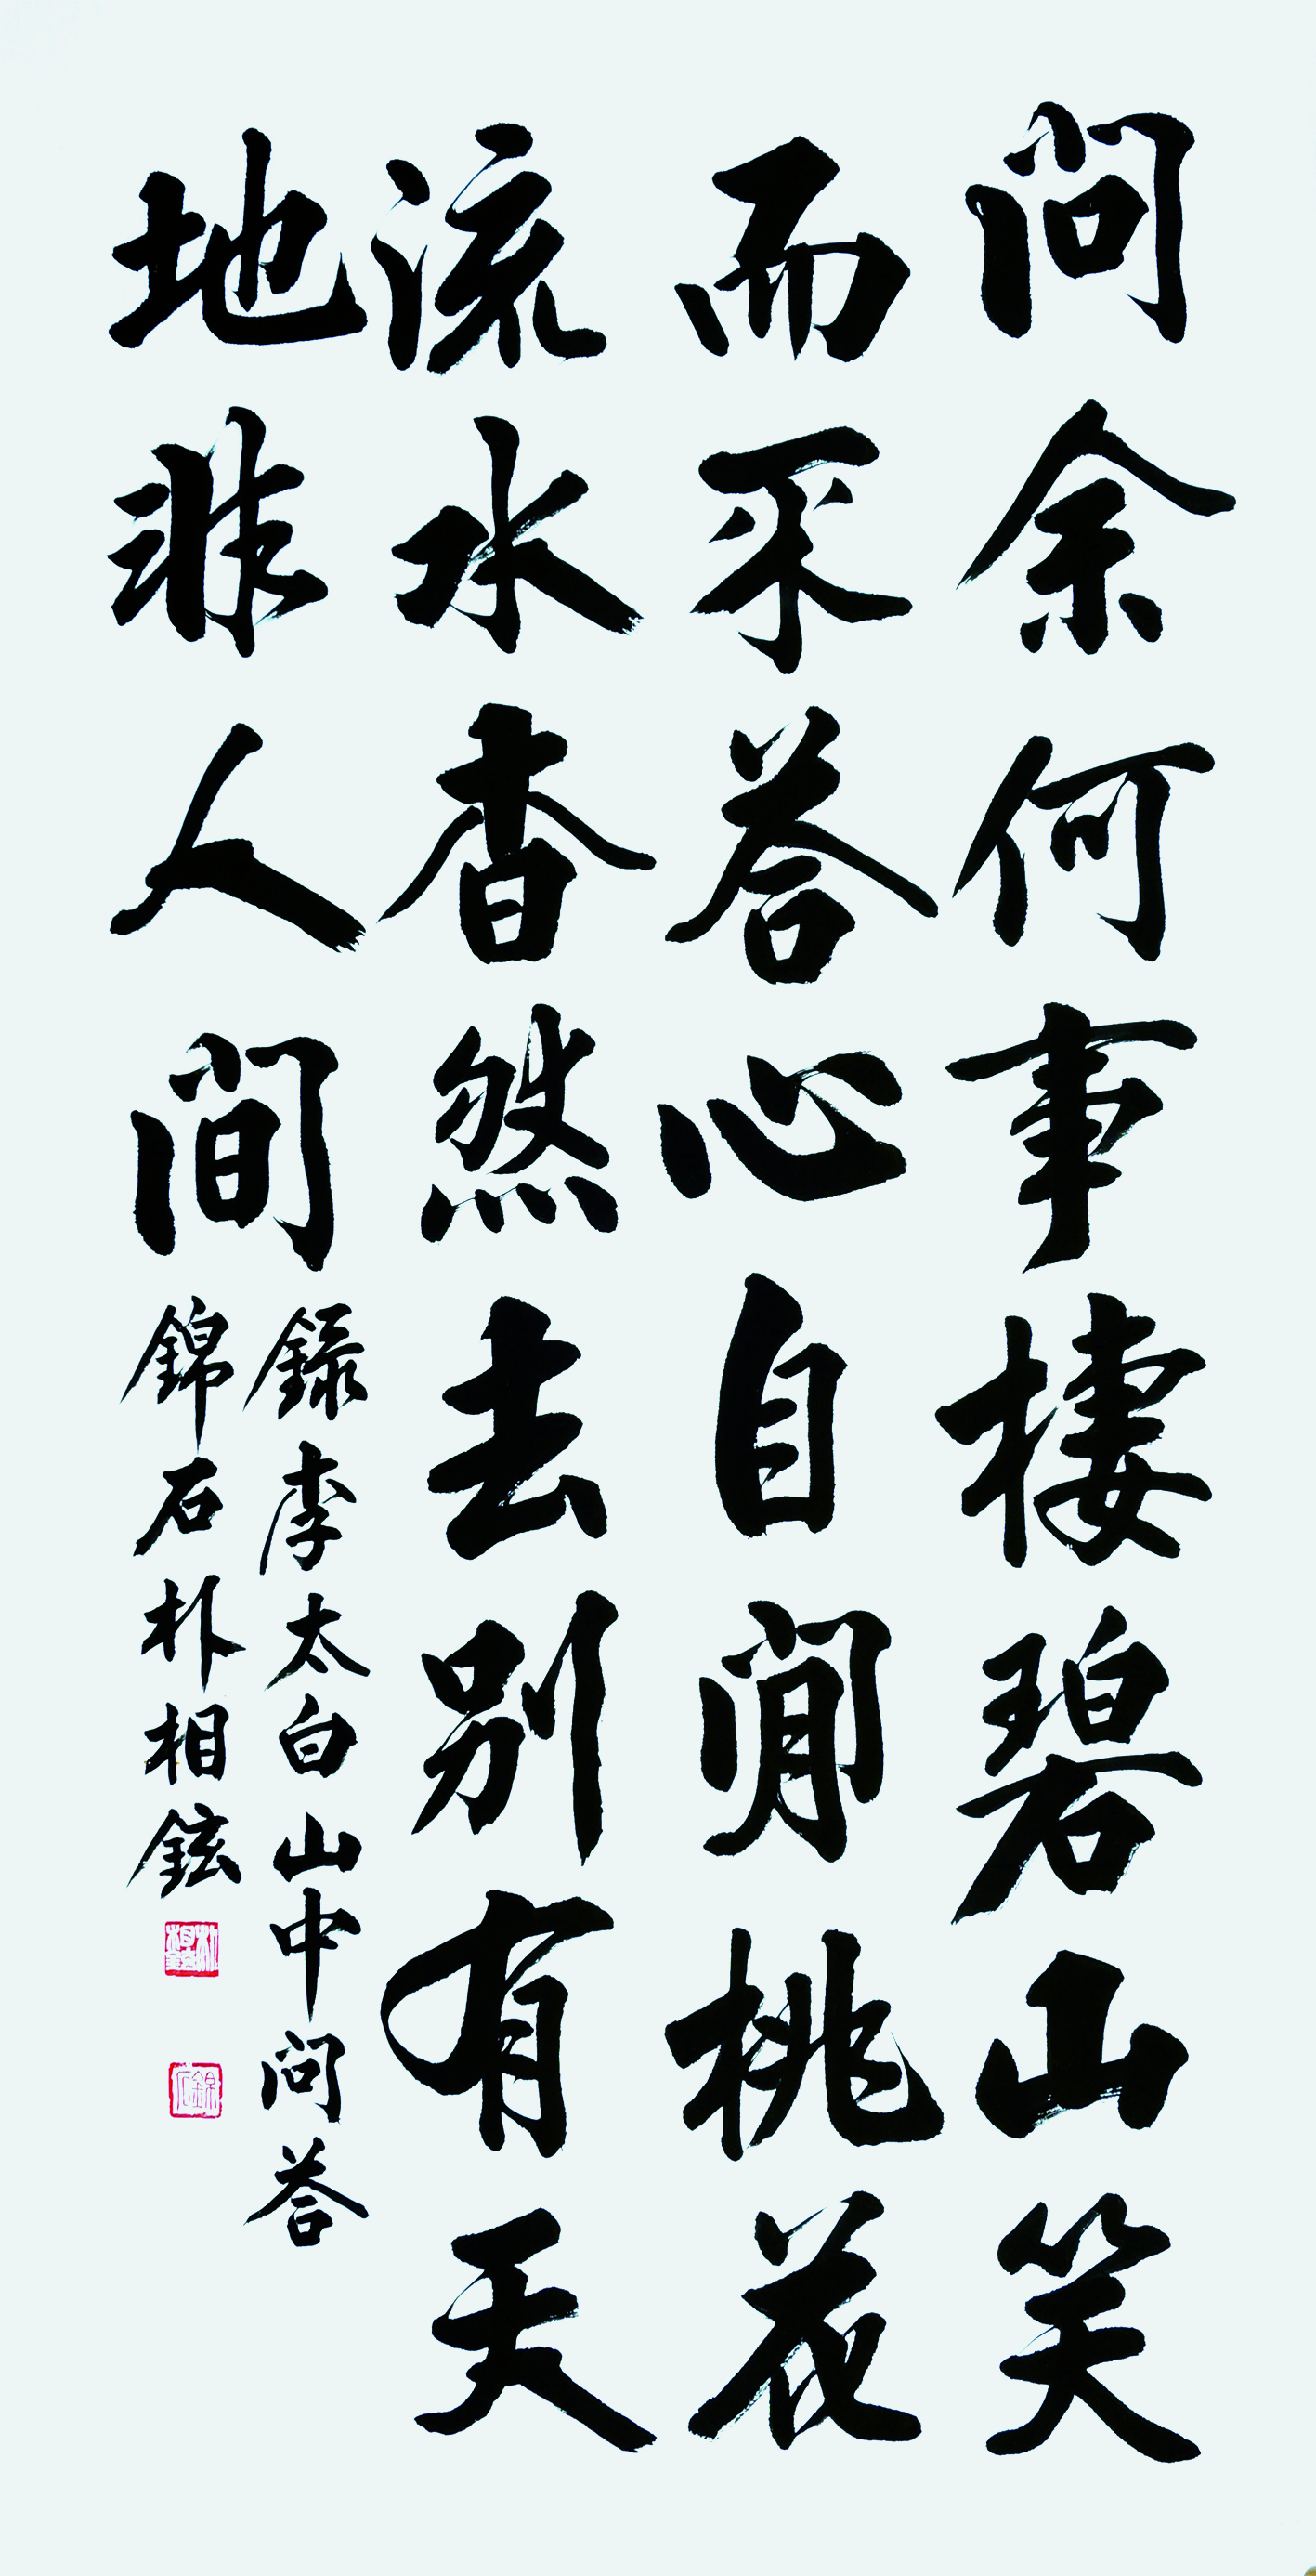 問余何事棲碧山笑
而不答心自閒桃花
流水杳然去別有天
地非人間
錄李太白山中問答
錦石朴相鉉
錦石